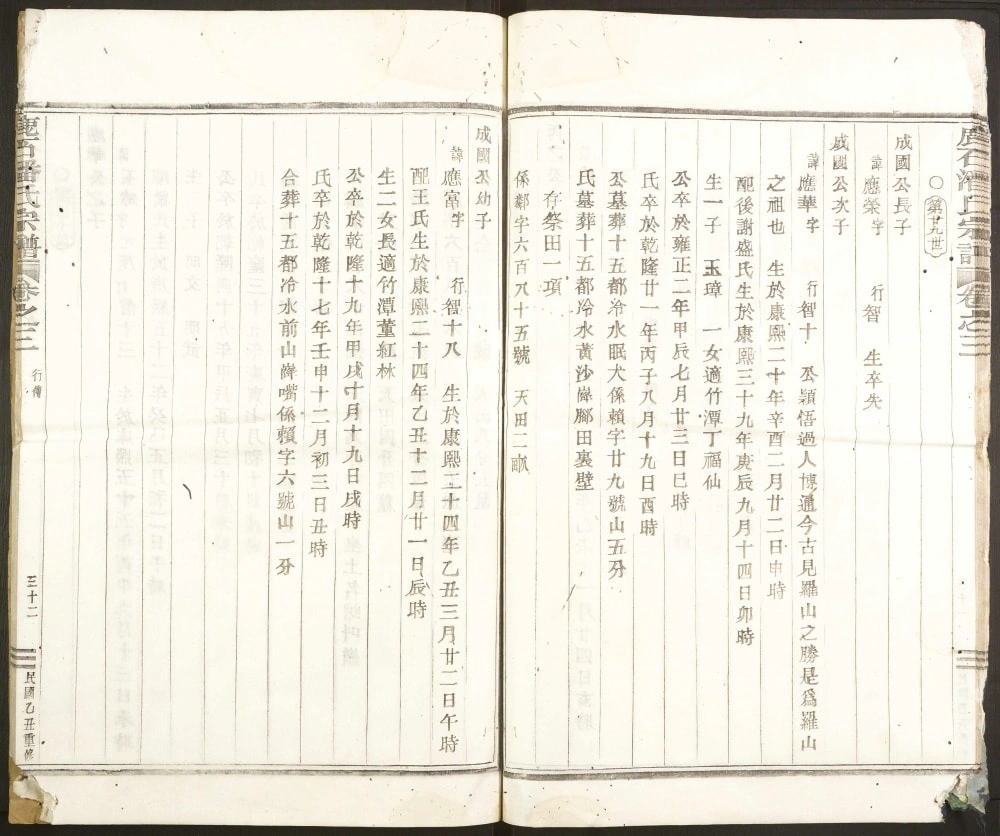 石潘氏宗譜 卷之三
○第廿九世
成國公長子
諱應榮字 行智 生卒失
成國公次子
諱應華字 行智十 公穎悟過人博通今古見羅山之勝是爲羅山
之祖也 生於康熙二十年辛酉二月廿二日申時
配後謝盛氏生於康熙三十九年庚辰九月十四日卯時
生一子 玉璋 一女適竹潭丁福仙
公卒於雍正二年甲辰七月廿三日巳時
氏卒於乾隆廿一年丙子八月十九日酉時
公墓葬十五都冷水眠犬係賴字廿九號山五分
氏墓葬十五都冷水黃沙崗腳田裏壁
存祭田一項
係鄰字六百八十五號 天田二畝
成國公幼子
諱應富字 行智十八 生於康熙二十四年乙丑三月廿二日午時
配王氏生於康熙二十四年乙丑十二月廿一日辰時
生二女長適竹潭董紅林
公卒於乾隆十九年甲戌十月十九日戌時
氏卒於乾隆十七年壬申十二月初三日丑時
合葬十五都冷水前山崗嘴係賴字六號山一分
石潘氏宗譜 卷之三 行傳 三十二 民國乙丑重修